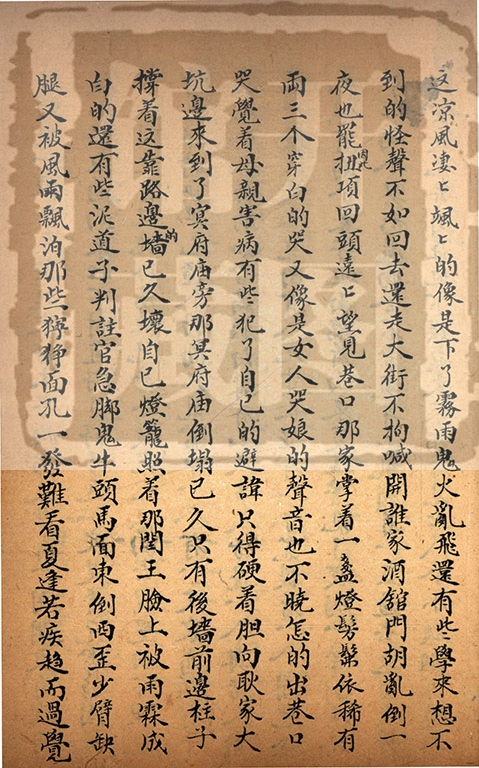 这凉風淒〻颯〻的像是下了霧雨鬼火亂飛還有些學來想不
到的怪聲不如回去還走大街不拘喊開誰家酒舘門胡亂倒一
夜也罷扭項回頭遠〻望見巷口那家掌着一盞燈髣髴依稀有
両三个穿白的哭又像是女人哭娘的聲音也不曉怎的出巷口
哭覺着母親害病有些犯了自己的避諱只得硬着胆向耿家大
坑邊來到了冥府庙旁那冥府庙倒塌已久只有後墻前邊柱子
撑着这靠路邊的墻已久壞自已燈籠照着那閻王臉上被雨霖成
白的還有些泥道子判註官急脚鬼牛頭馬面東倒西歪少臂缺
腿又被風雨飄泊那些猙狰面孔一發難看夏逢若疾趋而過覺